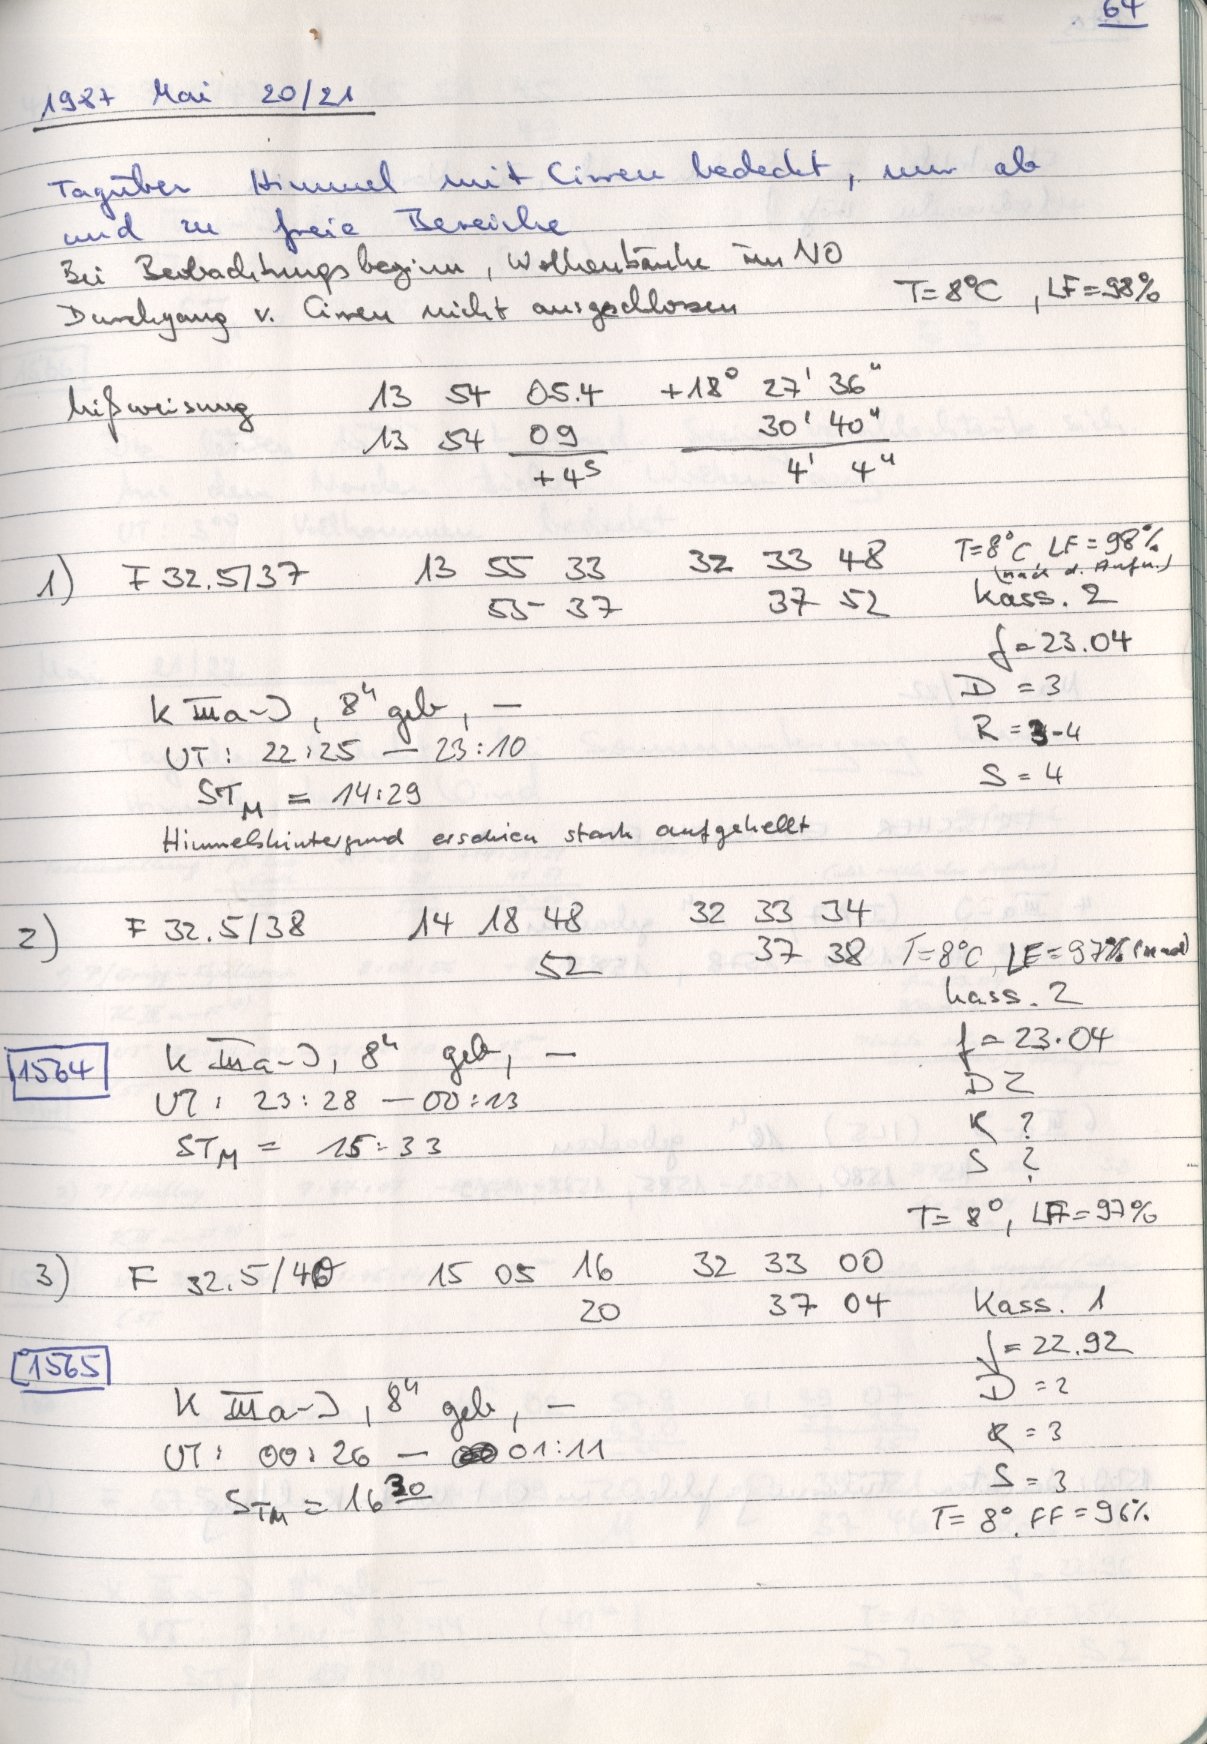 64
1987 Mai 20/21
Tagüber Himmel mit Cirren bedeckt, nur ab
und zu freie Bereiche
Bei Beobachtungsbeginn, Wolkenbänke im NO
Durchgang v. Cirren nicht ausgeschlossen T=8°C , LF=98%
Mißweisung 13 54 05.4 +18° 27' 36"
13 54 09 30' 40"
+4s 4' 4"
1) F 32.5/37 13 55 33 32 33 48 T=8°C LF=98%
(nach d. Aufn.)
55 37 37 52 Kass. 2
f=23.04
D = 3
K IIIa-J, 8h geb, — R = 3-4
UT: 22:25 — 23:10
S = 4
STM = 14:29
Himmelshintergrund erschien stark aufgehellt
2) F 32.5/38 14 18 48 32 33 34
52 37 38 T=8°C, LF=97% (nach)
Kass. 2
1564 K IIIa-J, 8h geb, — f=23.04
UT: 23:28 — 00:13 D 2
R ?
STM = 15:33 S ?
T=8°, LF=97%
3) F 32.5/40 15 05 16 32 33 00
20 37 04 Kass. 1
1565 f=22.92
D = 2
K IIIa-J, 8h geb, — R = 3
UT: 00:26 — 01:11
S = 3
STM = 16 30 T=8°, FF=96%